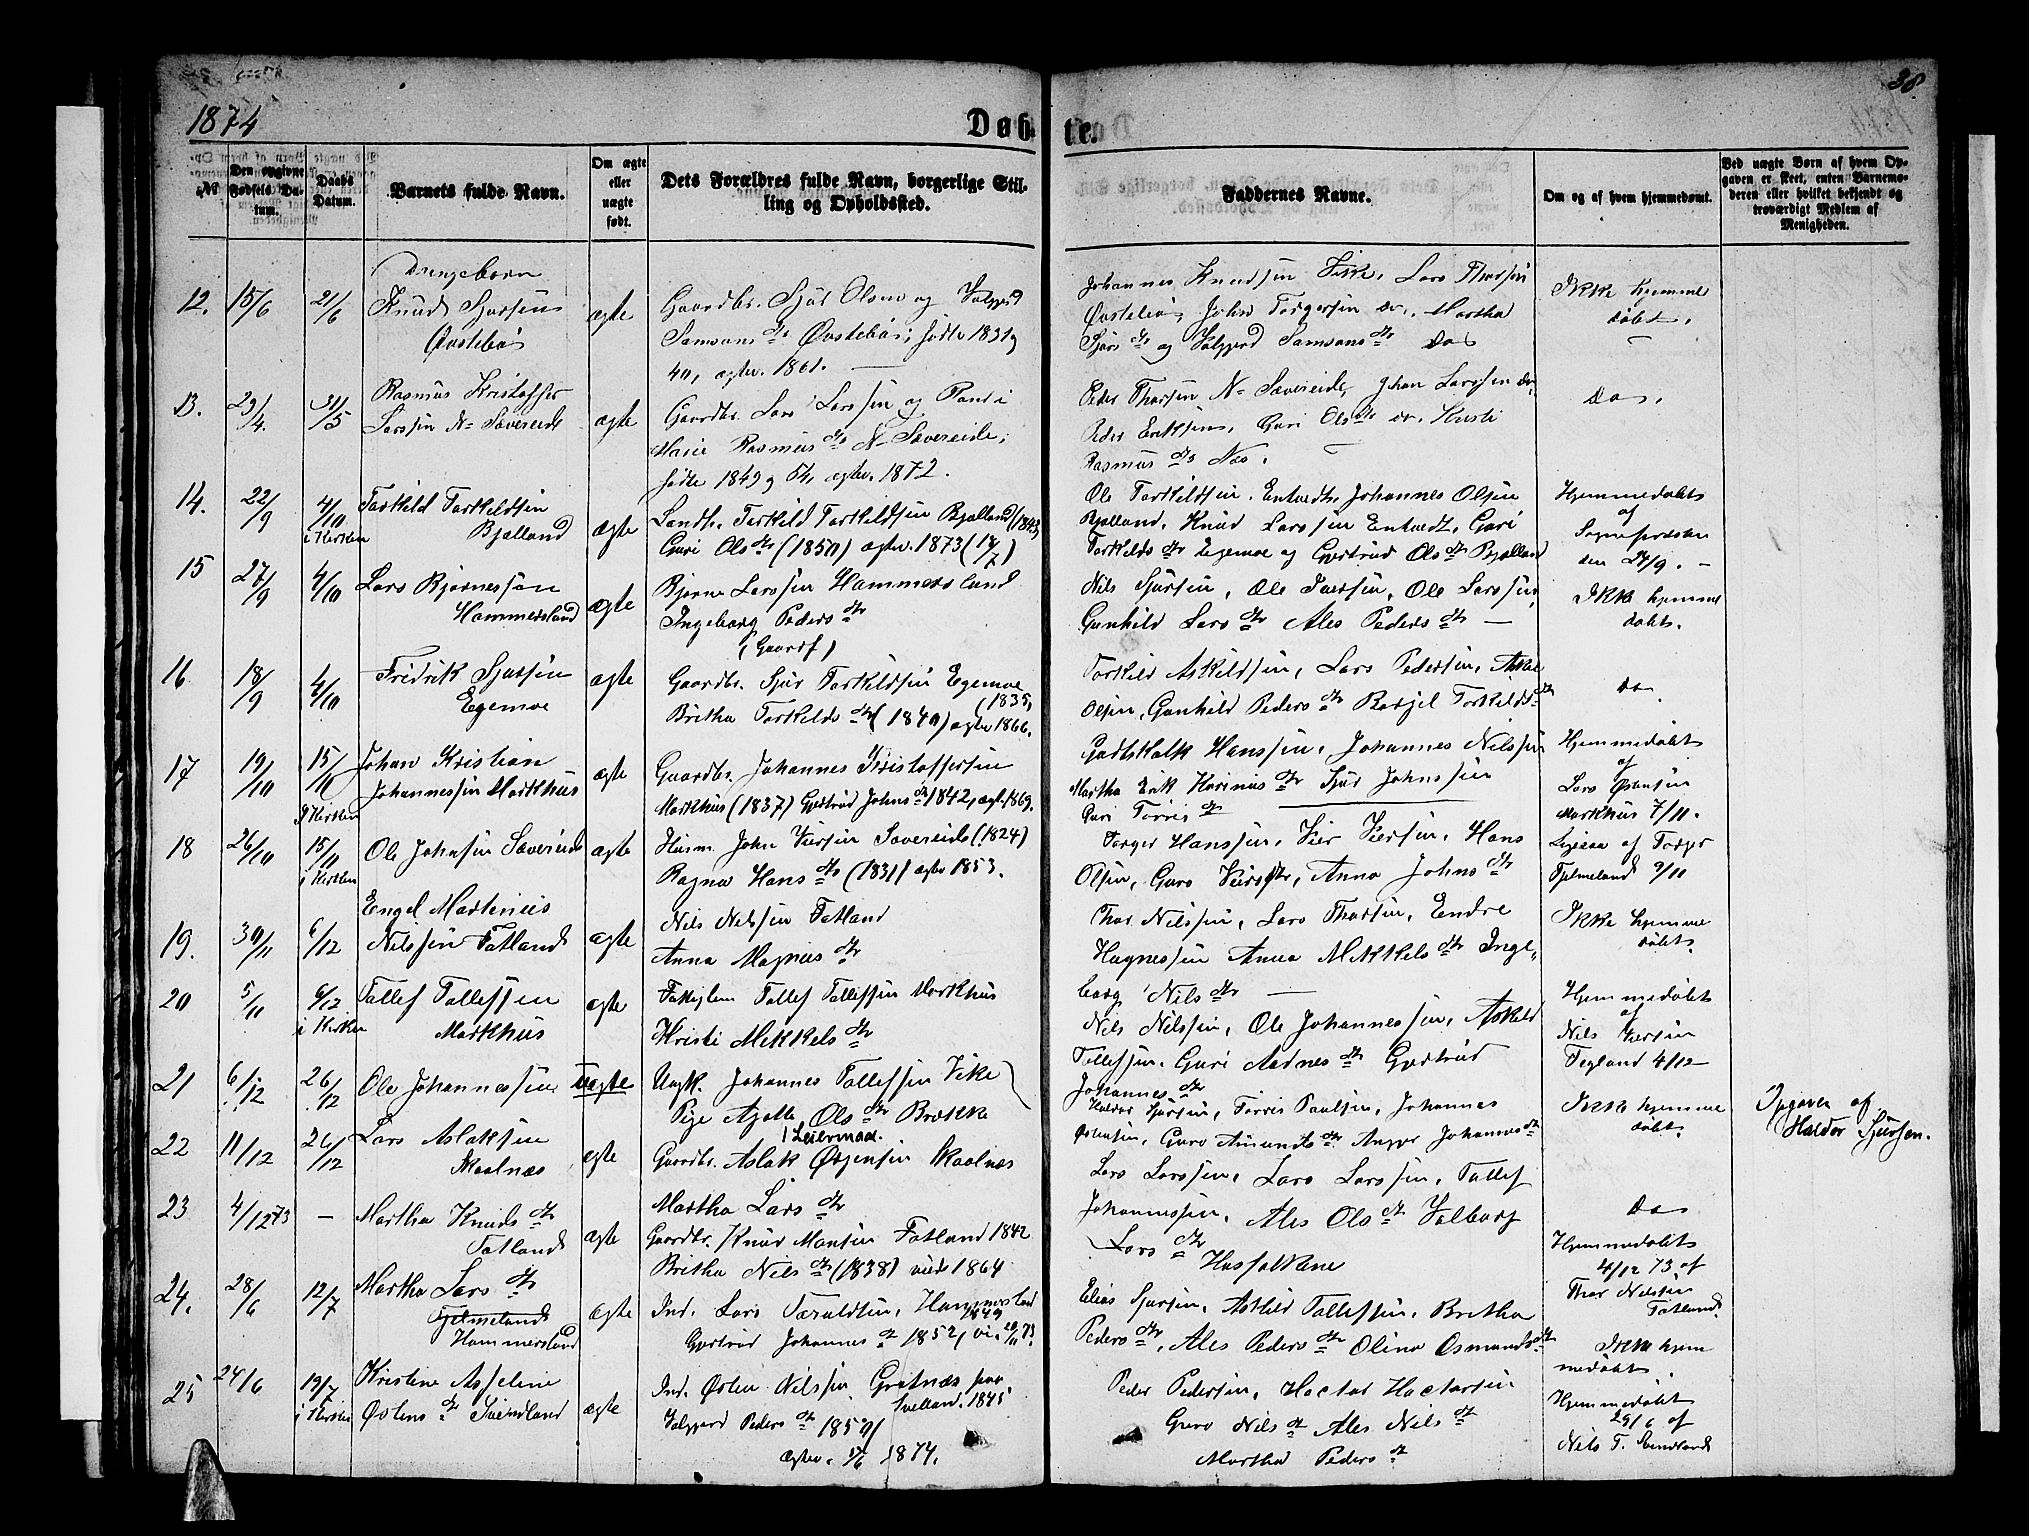 38.
1874
Døbte.
№
Den opgivne Fødsels Datum.
Daabs Datum.
Barnets fulde Navn.
Om ægte eller uægte født.
Dets Forældres fulde Navn, borgerlige Stilling og Opholdssted.
Faddernes Navne.
Om og af hvem hjemmedømt.
Ved uægte Børn af hvem Opgaven er skeet, enten Barnemoderen eller hvilket bekjendt og troværdigt Medlem af Menigheden.
12. 15/6 21/6 Drengebørn
Knud Sjursen
Øvstebø
ægte
Gaardbr. Sjur Olsen og Valgjerd
Samsons dtr Øvstebø; fødte 1831 og
40, ægtev. 1861.
Johannes Knudsen Vike, Lars Thorsen
Øvstebø, John Torgersen do, Martha
Sjurs dtr og Valgjerd Samsons dtr do
Ikke hjemme
døbt.
13. 29/4. 31/5 Rasmus Kristoffer
Larssen N. Sævereide
ægte
Gaardbr. Lars Larssen og
Marie Rasmus dtr N. Sævereide;
fødte 1849 og 54, ægtev. 1872.
Peder Thorsen N. Sævereide, Johan Larssen do,
Peder Eriksen, Guri Ols dtr do. Kristi
Rasmus dtr Næs.
do.
14. 22/9 4/10 i Kirken Torkild Torkildsen
Bjelland
ægte
Landh. Torkild Torkildsen Bjelland (1843)
Guri Ols dtr (1850) ægtev. 1873 (18/7)
Ole Torkildsen Entvedt, Johannes Olsen
Bjelland, Knud Larssen Entvedt, Guri
Torkilds dtr Egemoe og Gjertrud Ols dtr Bjelland
Hjemmedøbt
af
Sognepræsten
den 24/9.
15 27/9 4/10 Lars Bjørnesson
Hammersland
ægte
Bjørne Larssen Hammersland
Ingeborg Peders dtr
(Gaardf)
Nils Sjursen, Ole Iversen, Ole Larssen,
Gunhild Lars dtr Ales Peders dtr
Ikke hjemme
døbt.
16 18/9 4/10 Fredrik Sjursen
Egemoe
ægte
Gaardbr. Sjur Torkildsen Egemoe
(1835,
Britha Torkilds dtr (1840) ægtev 1866.
Torkild Askildsen, Lars Pedersen, Askil
Olsen, Gunhild Peders dtr Borgil Torkilds dtr
do.
17 19/10 15/11 i Kirken Johan Kristian
Johannessen Markhus
ægte
Gaardbr. Johannes Kristoffersen
Markhus (1837) Gjertrud Johns dtr 1842, ægt. 1869.
Godtskalk Hanssen, Johannes Nilssen
Martha Erik Karinus dtr Sjur Johnssen
Guri Torris dtr
Hjemmedøbt
af
Lars Østensen
Markhus 7/11.
18 26/10 15/11 i Kirken Ole Johnsen Sævereide
ægte
Husm. John Viersen Sævereide (1824)
Ragna Hans dtr (1831) ægtev 1853.
Torger Hanssen, Vier Viersen, Hans
Olsen, Guro Viers dtr, Anna Johns dtr
Ligesaa af Torger
Fjelmeland 9/11
19. 30/11 6/12 Engel Martinius
Nilssen Fatland
ægte
Nils Nilssen Fatland
Anna Magnus dtr
Thor Nilssen, Lars Thorsen, Endre
Magnessen Anna Mikkels dtr Inge,
borg Nils dtr
Ikke hjemme
døbt.
20 5/11 6/12 i Kirken Tollef Tollefssen
Markhus
ægte
Tollef Tollefssen Markhus
Kristi Mikkels dtr
Nils Nilssen, Ole Johannessen, Askild
Tollefssen, Guri Aadnes dtr Gjertrud
Johannes dtr
Hjemmedøbt
af
Nils Viersen
Fegland 4/12
21 6/12 26/12 Ole Johannessen
uægte
Ungk. Johannes Tollefssen Vike
Pige Agatte Ols dtr Brekke
1 Leiermaal.
Haldor Sjursen, Torris Paulsen, Johannes
Østensen, Guro Amunds dtr Angjer Johannes dtr
Ikke hjemme
døbt.
Opgaven af
Haldor Sjursen.
22 11/12 26/12 Lars Aslaksen
Skaalnæs
ægte
Gaardbr. Aslak Ørjensen Skaalnæs
Martha Lars dtr
Lars Larssen, Lars Larssen, Tollef
Johannessen, Ales Ols dtr Valborg
Lars dtr
Husfolkene
do
23 4/12 73 — Martha Knuds dtr
Fatland
ægte
Gaardbr. Knud Monsen Fatland 1842
Britha Nils dtr (1838) viede 1864
Hjemmedøbt
4/12 73 af
Thor Nilssen
Fatland
24. 28/6 12/7 Martha Lars dtr
Fjelmeland
Hammersland
ægte
Ind. Lars Taraldsen, Hammersland
1849
Gjertrud Johannes dtr 1852, vi. 20/11 73.
Elias Sjursen, Askild Tollefssen, Britha
Peders dtr, Ales Peders dtr Olina Osmunds dtr
Ikke hjem
medøbt.
25 24/6 19/7 i Kirken Kristine Asseline
Østens dtr Svendland
ægte
Ind. Østen Nilssen Gretnæs paa
Svelland. 1845
Valgjerd Peders dtr 1850
Ægtev. 1874.
Peder Pedersen, Hactor Hactorsen
Guro Nils dtr Ales Nils dtr
Martha Peders dtr
Hjemmedøbt
29/6 af
Nils T. Svendland